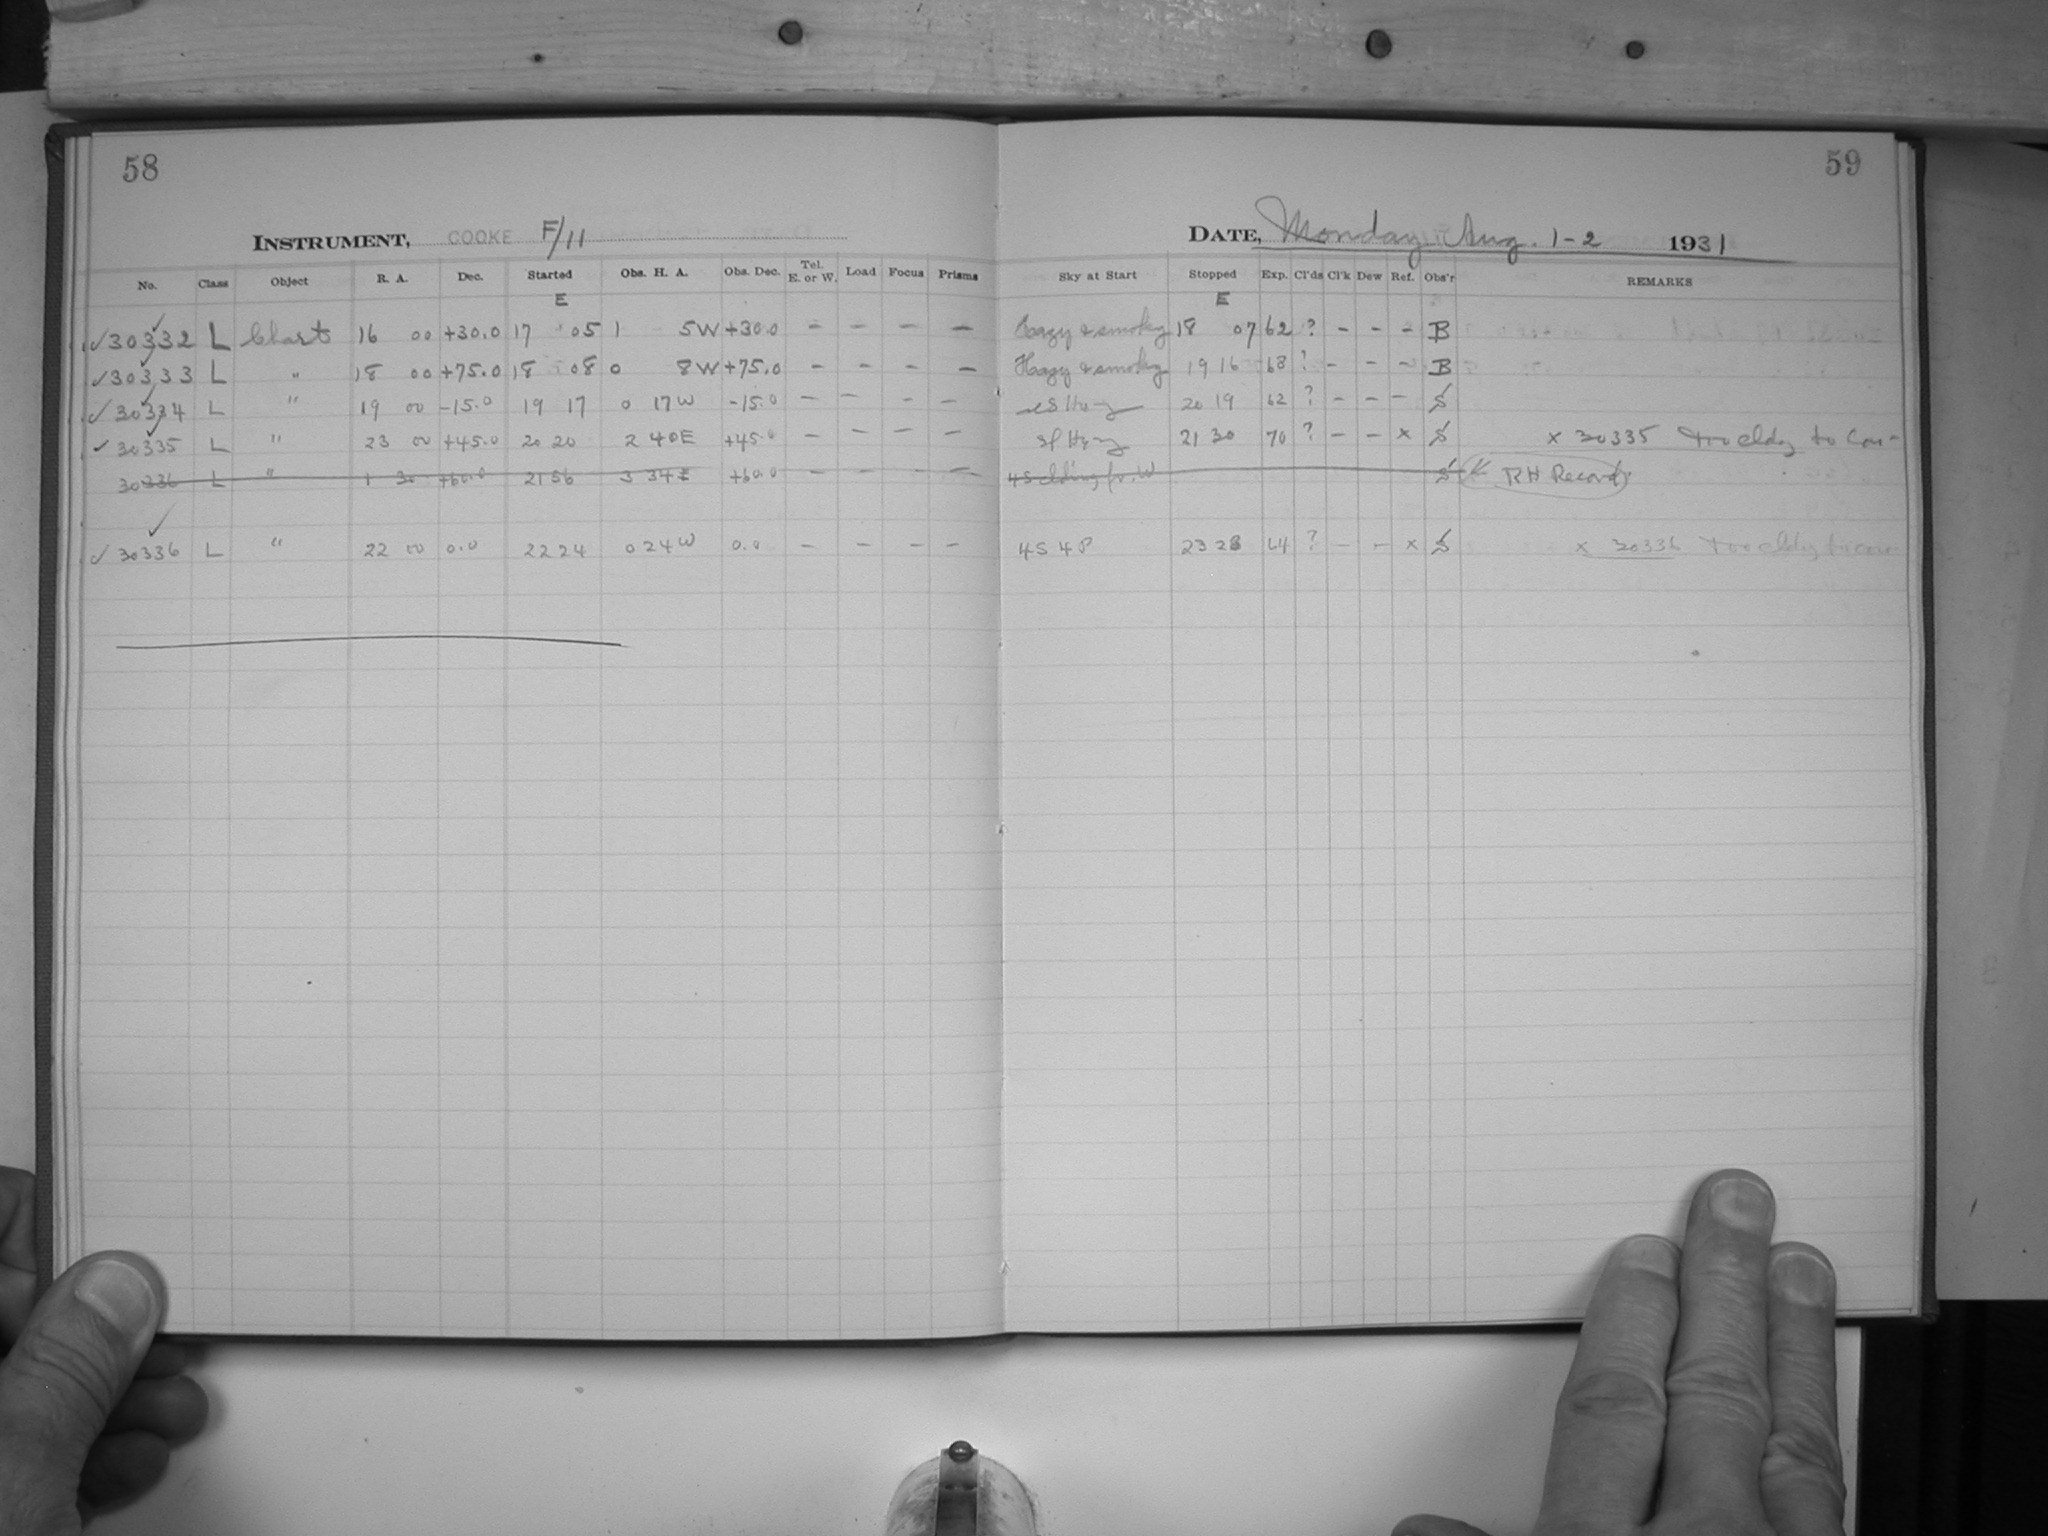 58
59
INSTRUMENT, COOKE F/11
DATE, Monday Aug. 1-2 1931
No. Class Object R. A. Dec. Started Obs. H. A. Obs. Dec. Tel. E. or W. Load Focus Prisms Sky at Start Stopped Exp. Cl'ds Cl'k Dew Ref. Obs'r REMARKS
E E
✓30332 L Chart 16 00 +30.0 17 05 1 5W +30.0 - - - - Hazy & smoky 18 07 62 ? - - - B
✓30333 L " 18 00 +75.0 18 08 0 8W +75.0 - - - - Hazy & smoky 19 16 68 ? - - - B
✓30334 L " 19 00 -15.0 19 17 0 17W -15.0 - - - - 20 19 62 ? - - - S
✓30335 L " 23 00 +45.0 20 20 2 40E +45.0 - - - - 21 30 70 ? - - x S x 30335 too cldy to con-
30336 L " 1 30 +60.0 21 56 3 34E +60.0 - - - - 4S clding fr. W S RH Record
✓30336 L " 22 00 0.0 22 24 0 24W 0.0 - - - - 4S 4P 23 28 64 ? - - x S x 30336 too cldy to con